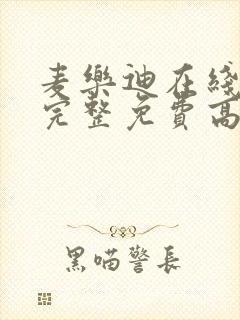 麦樂迪在綫
完整免費高
黑喵警長